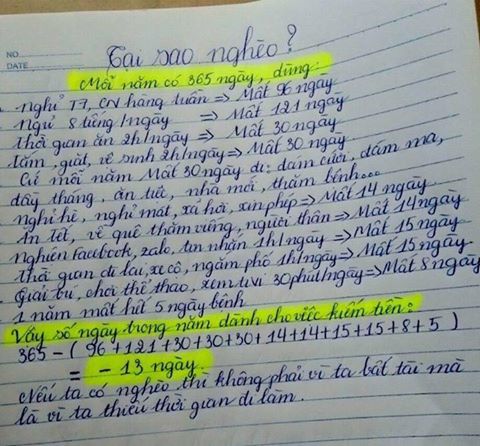 NO.
DATE
Tại sao nghèo?
Mỗi năm có 365 ngày, dùng:
. Nghỉ T7, CN hàng tuần => Mất 96 ngày
. Ngủ 8 tiếng/ngày => Mất 121 ngày
. Thời gian ăn 2h/ngày => Mất 30 ngày
. tắm, giặt, vệ sinh 2h/ngày => Mất 30 ngày
. Cứ mỗi năm Mất 30 ngày đi: đám cưới, đám ma,
đầy tháng, ăn tết, nhà mới, thăm bệnh...
. Nghỉ hè, nghỉ mát, xả hơi, xin phép => Mất 14 ngày
. Ăn Tết, về quê thăm viếng, người thân => Mất 14 ngày
. Nghiện facebook, zalo, tin nhắn 1h/ngày => Mất 15 ngày
. thời gian đi tàu, xe cộ, ngắm phố 1h/ngày => Mất 15 ngày
. Giải trí, chơi thể thao, xem tivi 30 phút/ngày => Mất 8 ngày
. 1 năm mất hết 5 ngày bệnh
Vậy số ngày trong năm dành cho việc kiếm tiền:
365 - ( 96 + 121 + 30 + 30 + 30 + 14 + 14 + 15 + 15 + 8 + 5 )
= - 13 ngày
Nếu ta có nghèo thì không phải vì ta bất tài mà
là vì ta thiếu thời gian đi làm.